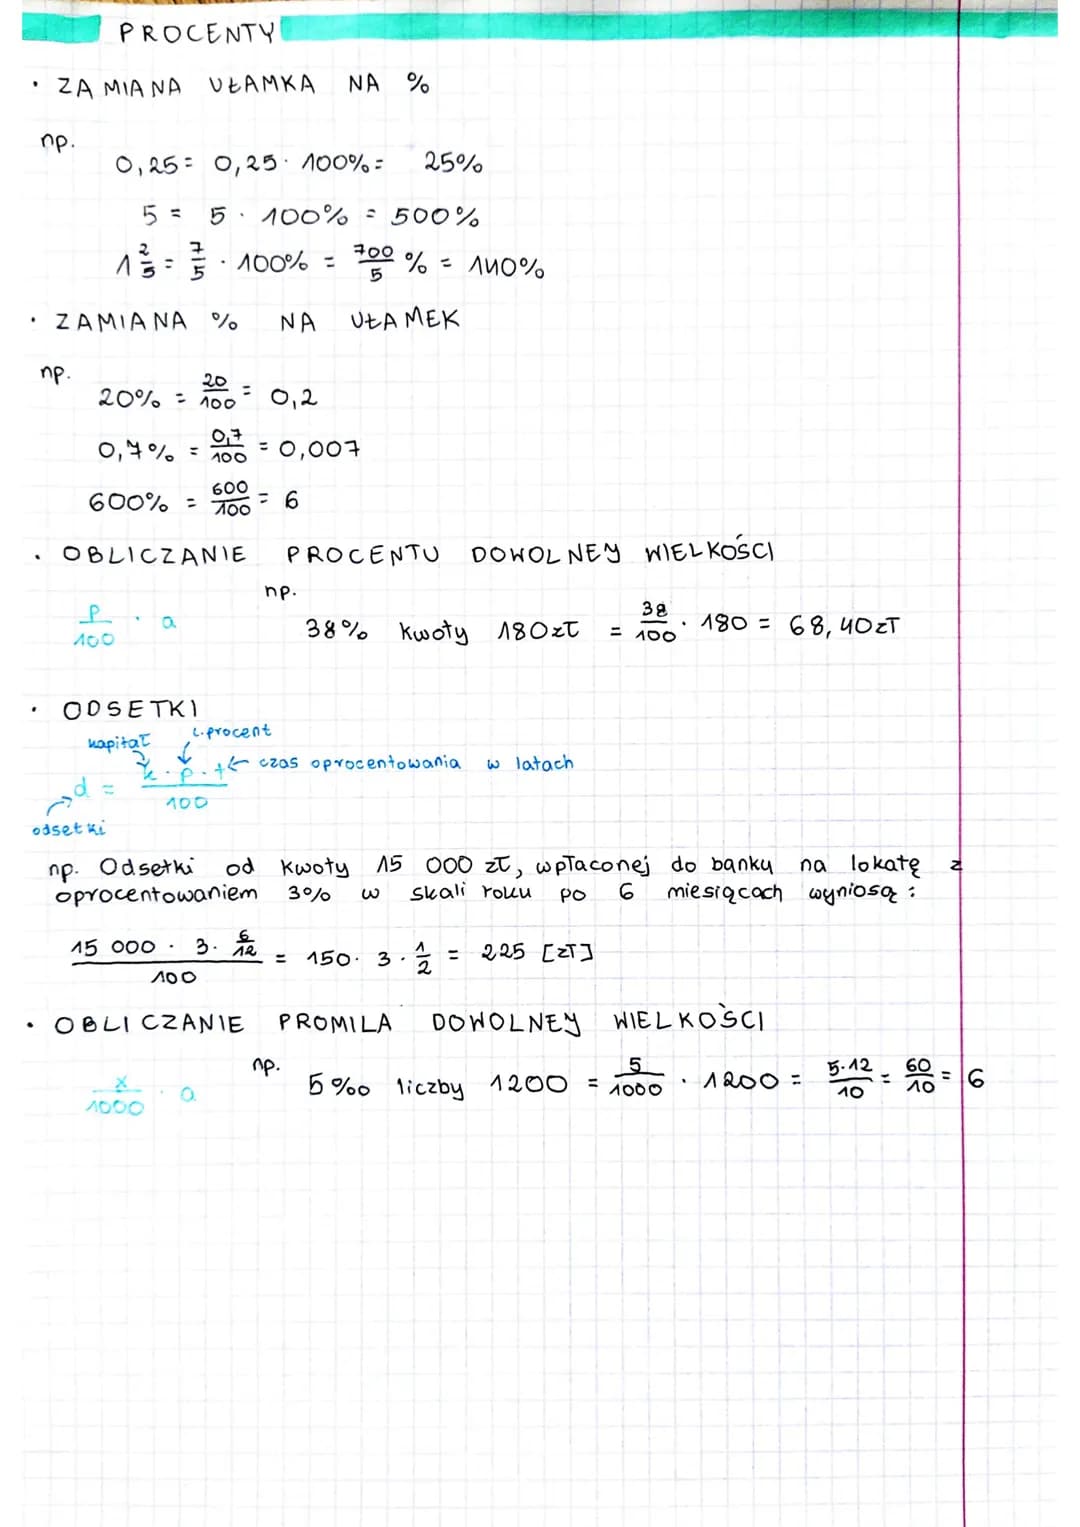 PROCENTY
• ZAMIANA UŁAMKA NA %
np.
0,25 = 0,25 · 100% = 25%
5 = 5 · 100% = 500%
1 2/5 = 7/5 · 100% = 700/5 % = 140%
• ZAMIANA % NA UŁAMEK
np.
20% = 20/100 = 0,2
0,7% = 0,7/100 = 0,007
600% = 600/100 = 6
• OBLICZANIE PROCENTU DOWOLNEJ WIELKOŚCI
np.
p/100 · a 38% kwoty 180zł = 38/100 · 180 = 68,40zł
• ODSETKI
kapitał l.procent
d = k · p · t/100 ← czas oprocentowania w latach
odsetki
np. Odsetki od kwoty 15 000 zł, wpłaconej do banku na lokatę z
oprocentowaniem 3% w skali roku po 6 miesiącach wyniosą :
15 000 · 3 · 6/12/100 = 150 · 3 · 1/2 = 225 [zł]
• OBLICZANIE PROMILA DOWOLNEJ WIELKOŚCI
np.
x/1000 · a 5‰ liczby 1200 = 5/1000 · 1200 = 5·12/10 = 60/10 = 6